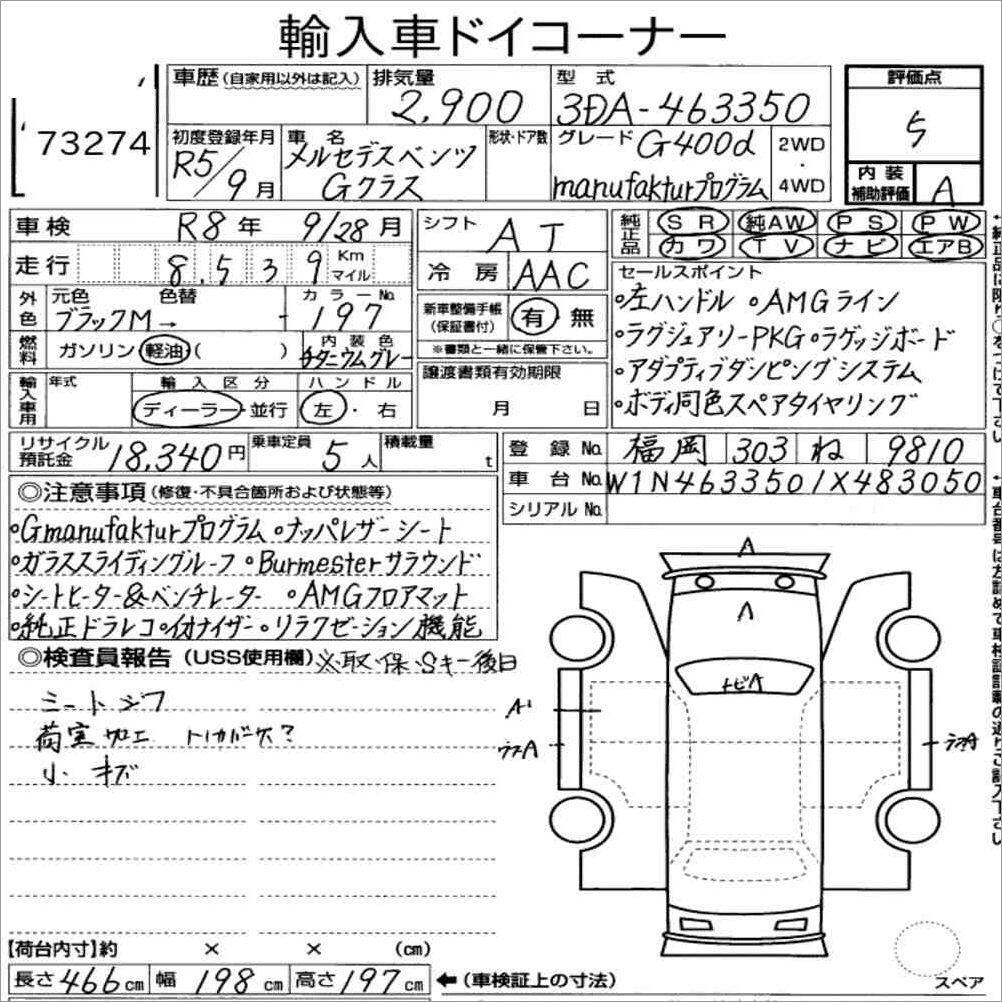 輸入車ドイコーナー
73274
車歴(自家用以外は記入) 排気量 型式 評価点
2,900 3DA-463350 5
初度登録年月 車名 形状・ドア数 グレード G400d 2WD・4WD
R5/9月 メルセデスベンツ Gクラス manufakturプログラム
内装補助評価 A
車検 R8年 9/28月 シフト AT 純正品 SR 純AW PS PW
カワ TV ナビ エアB
走行 8,539 Km マイル 冷房 AAC
セールスポイント
外色 元色 色替 カラーNo
ブラックM→ - 197
新車整備手帳(保証書付) 有 無
※書類と一緒に保管下さい。
燃料 ガソリン・軽油( ) 内装色 チタニウムグレー
・左ハンドル ・AMGライン
・ラグジュアリーPKG・ラゲッジボード
・アダプティブダンピングシステム
・ボディ同色スペアタイヤリング
輸入車用 年式 輸入区分 ハンドル 譲渡書類有効期限
ディーラー・並行 左・右 月 日
リサイクル預託金 18,340円 乗車定員 5人 積載量 t
登録No. 福岡 303 ね 9810
車台No. W1N4633501X483050
シリアルNo.
◎注意事項(修復・不具合箇所および状態等)
・Gmanufakturプログラム・ナッパレザーシート
・ガラススライディングルーフ・Burmesterサラウンド
・シートヒーター&ベンチレーター ・AMGフロアマット
・純正ドラレコ・イオナイザー・リラクゼーション機能
◎検査員報告(USS使用欄)※取・保・Sキー後日
シートシワ
荷室加工
小キズ
A
A
トビA
A1
ウスA
【荷台内寸】約 × × (cm)
長さ466cm 幅198cm 高さ197cm ←(車検証上の寸法)
スペア